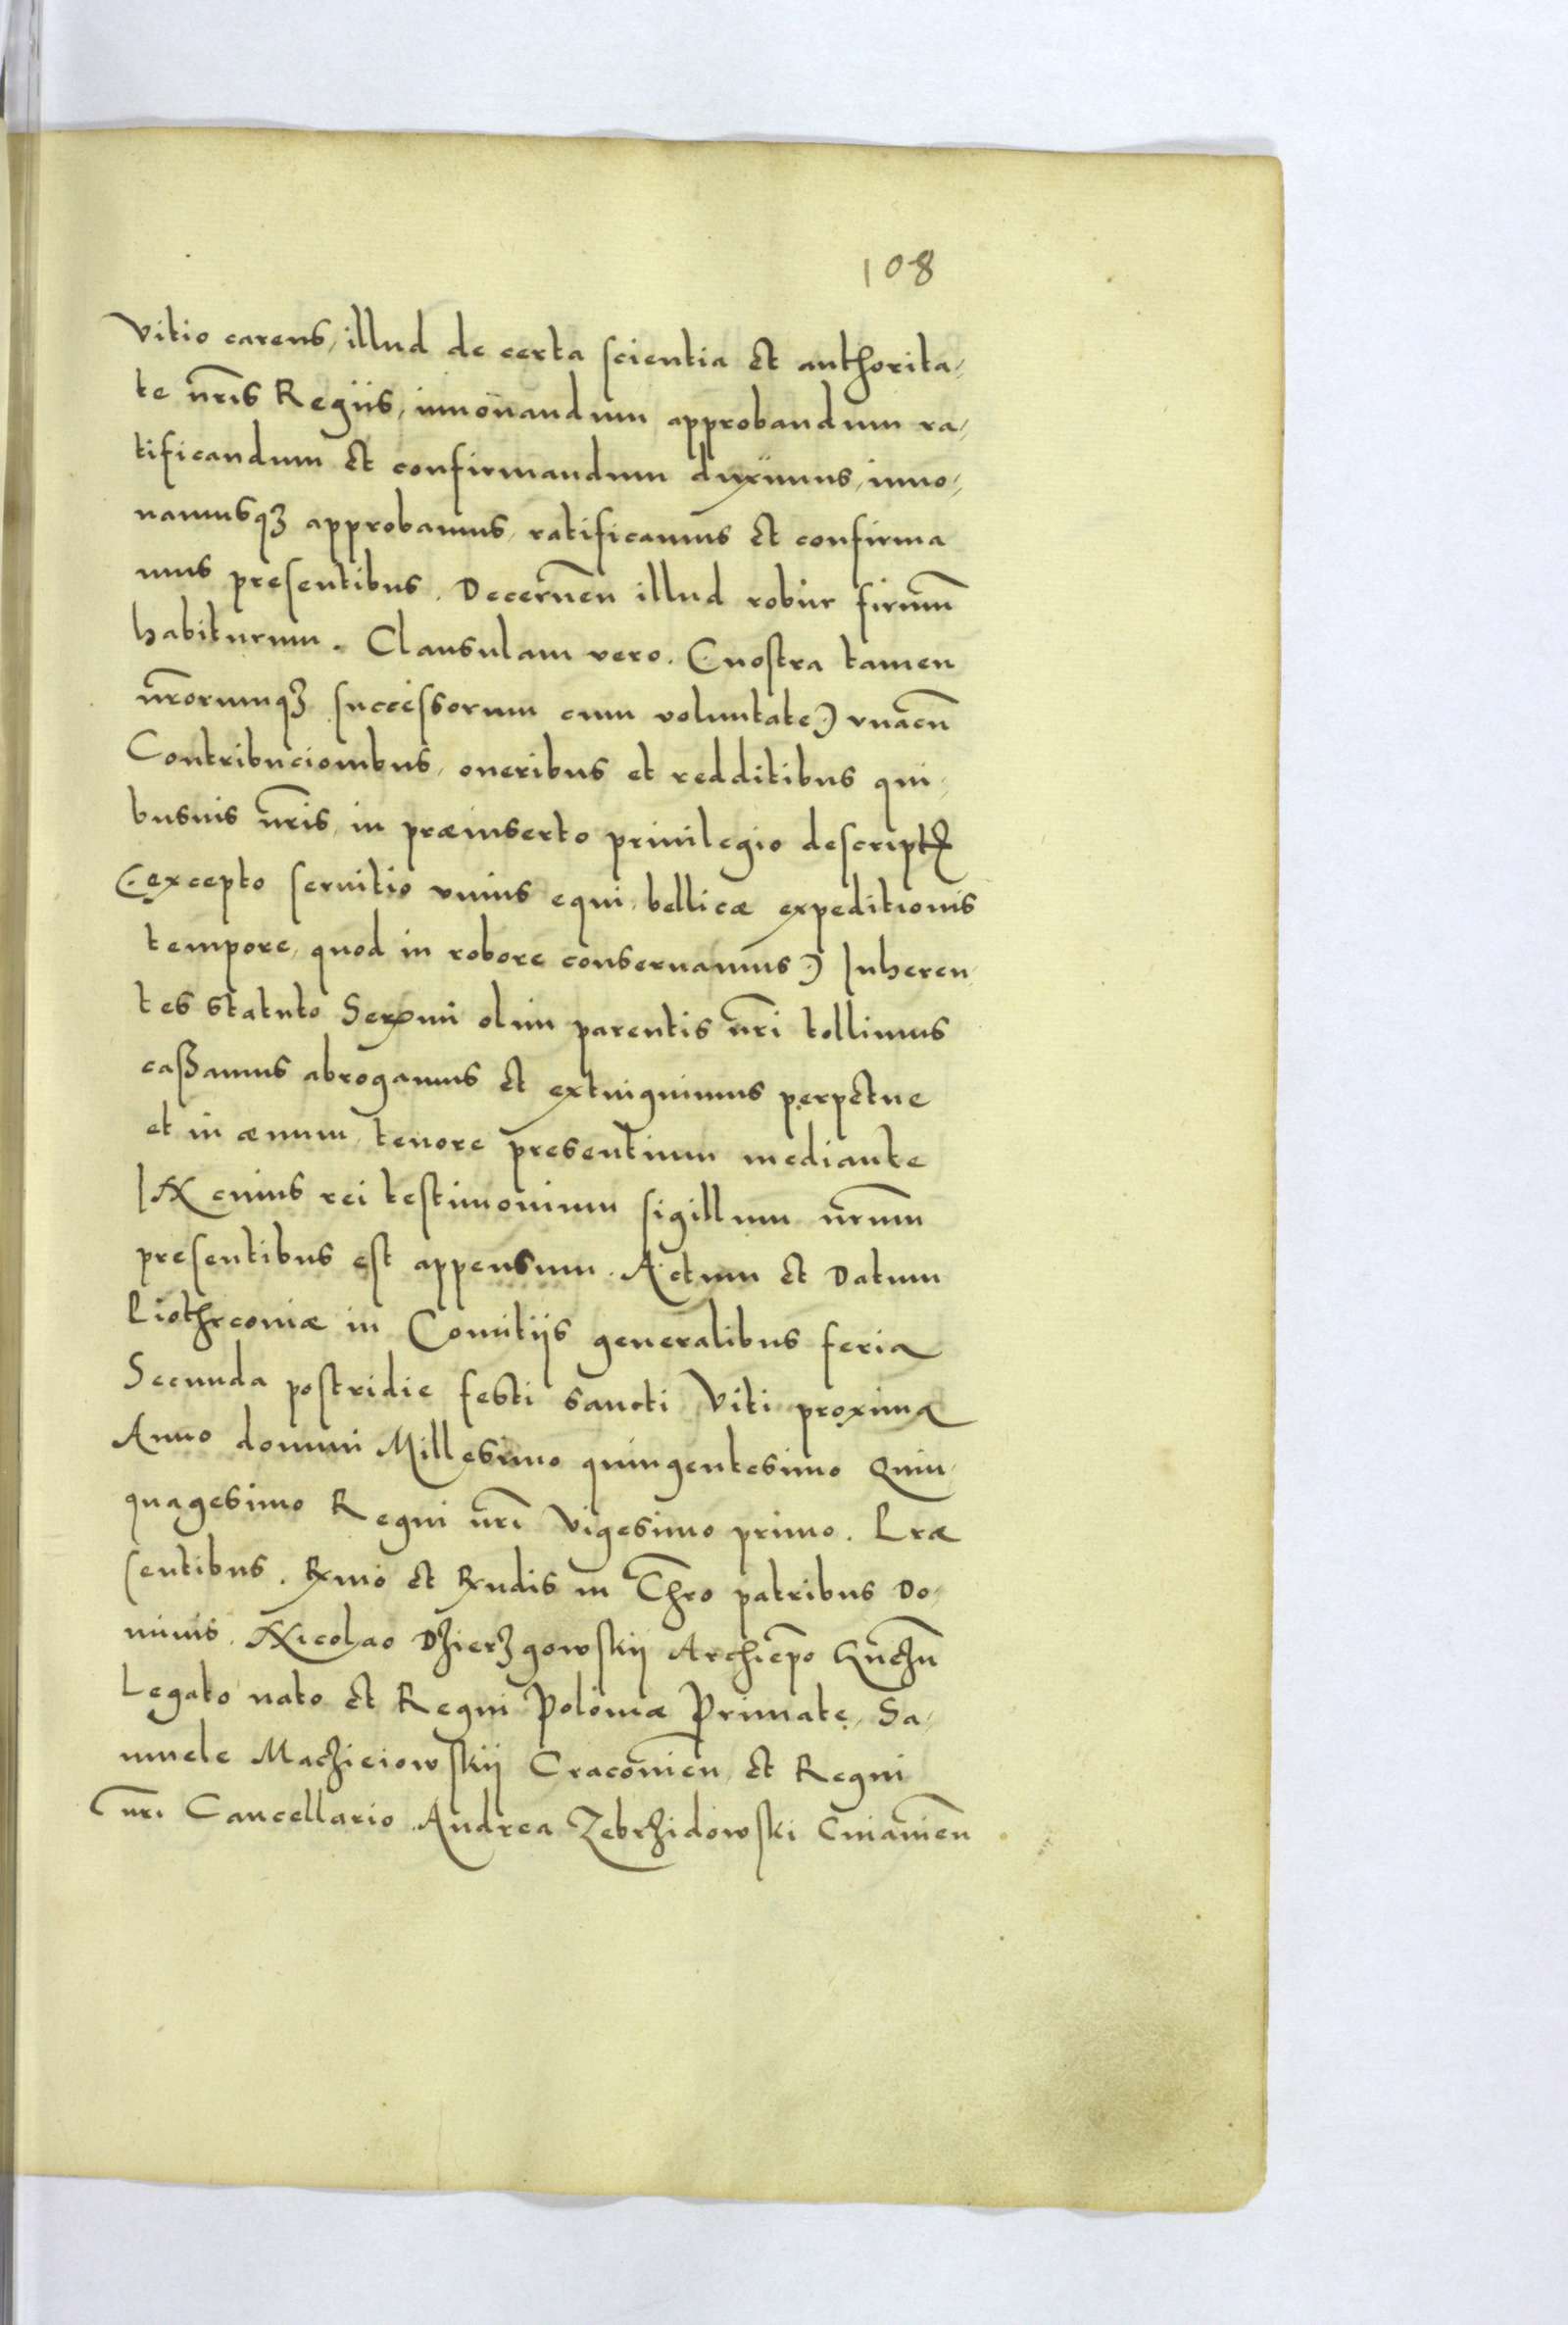 108
Vitio carens, illud de certa scientia et authorita-
te nr̃is Regiis, innouandum approbandum ra-
tificandum et confirmandum duximus, inno-
uamusqȝ approbamus, ratificamus et confirma
mus presentibus. Decerneñ illud robur firmũm
habiturum. Clausulam vero. (nostra tamen
nr̃orumqȝ successorum cum voluntate) vnacũ
Contribucionibus, oneribus et redditibus qui-
busuis nr̃is, in præinserto priuilegio descriptꝭ
(excepto seruitio vnius equi, bellicæ expeditionis
tempore, quod in robore conseruamus) Inheren-
tes statuto Serm̃i olim parentis nr̃i tollimus
cassamus abrogamus et extinguimus perpetue
et in æuum, tenore presentium mediante
IN cuius rei testimonium sigillum nr̃um
presentibus est appensum. Actum et Datum
Piothrconiæ in Comitijs generalibus feria
Secunda postridie festi sancti Viti proxima
Anno domini Millesimo quingentesimo Quin-
quagesimo Regni nr̃i Vigesimo primo. Præ
sentibus. Rm̃o et Rñdis in Chr̃o patribus Do-
minis. Nicolao Dzierzgowskij Archiep̃o Gnezñ
Legato nato et Regni Poloniæ Primate, Sa-
muele Maczieiowskij Cracouieñ, et Regni
nr̃i Cancellario. Andrea Zebrzidowski Cuiauieñ